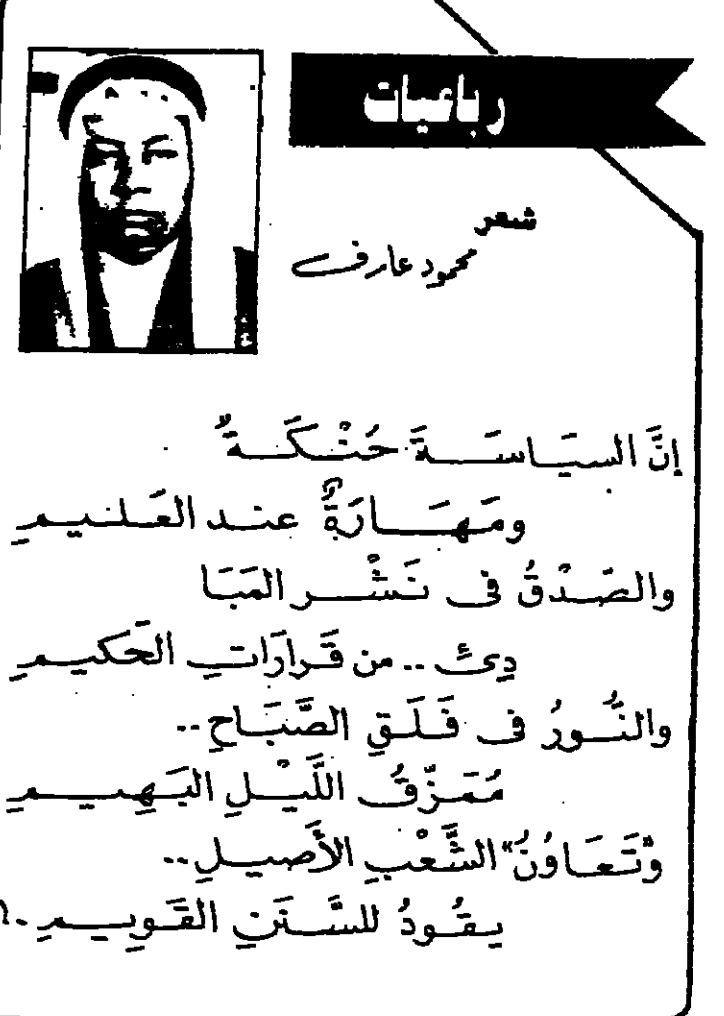 رباعيات
شعر
محمود عارف
إنَّ السيَاسَةَ حُنْكَةٌ
ومَهَارَةٌ عند العَليمِ
والصَدْقُ فى نَشْرِ المَبَا
دِئِ .. من قَرارَاتِ الحَكيمِ
والنُّورُ فى فَلَقِ الصَّبَاحِ ..
مُمَزِّقُ اللَّيْلِ البَهِيمِ
و"تَعَاوُنُ" الشَّعْبِ الأَصيلِ ..
يقُودُ للسَّنَنِ القَوِيمِ .. !